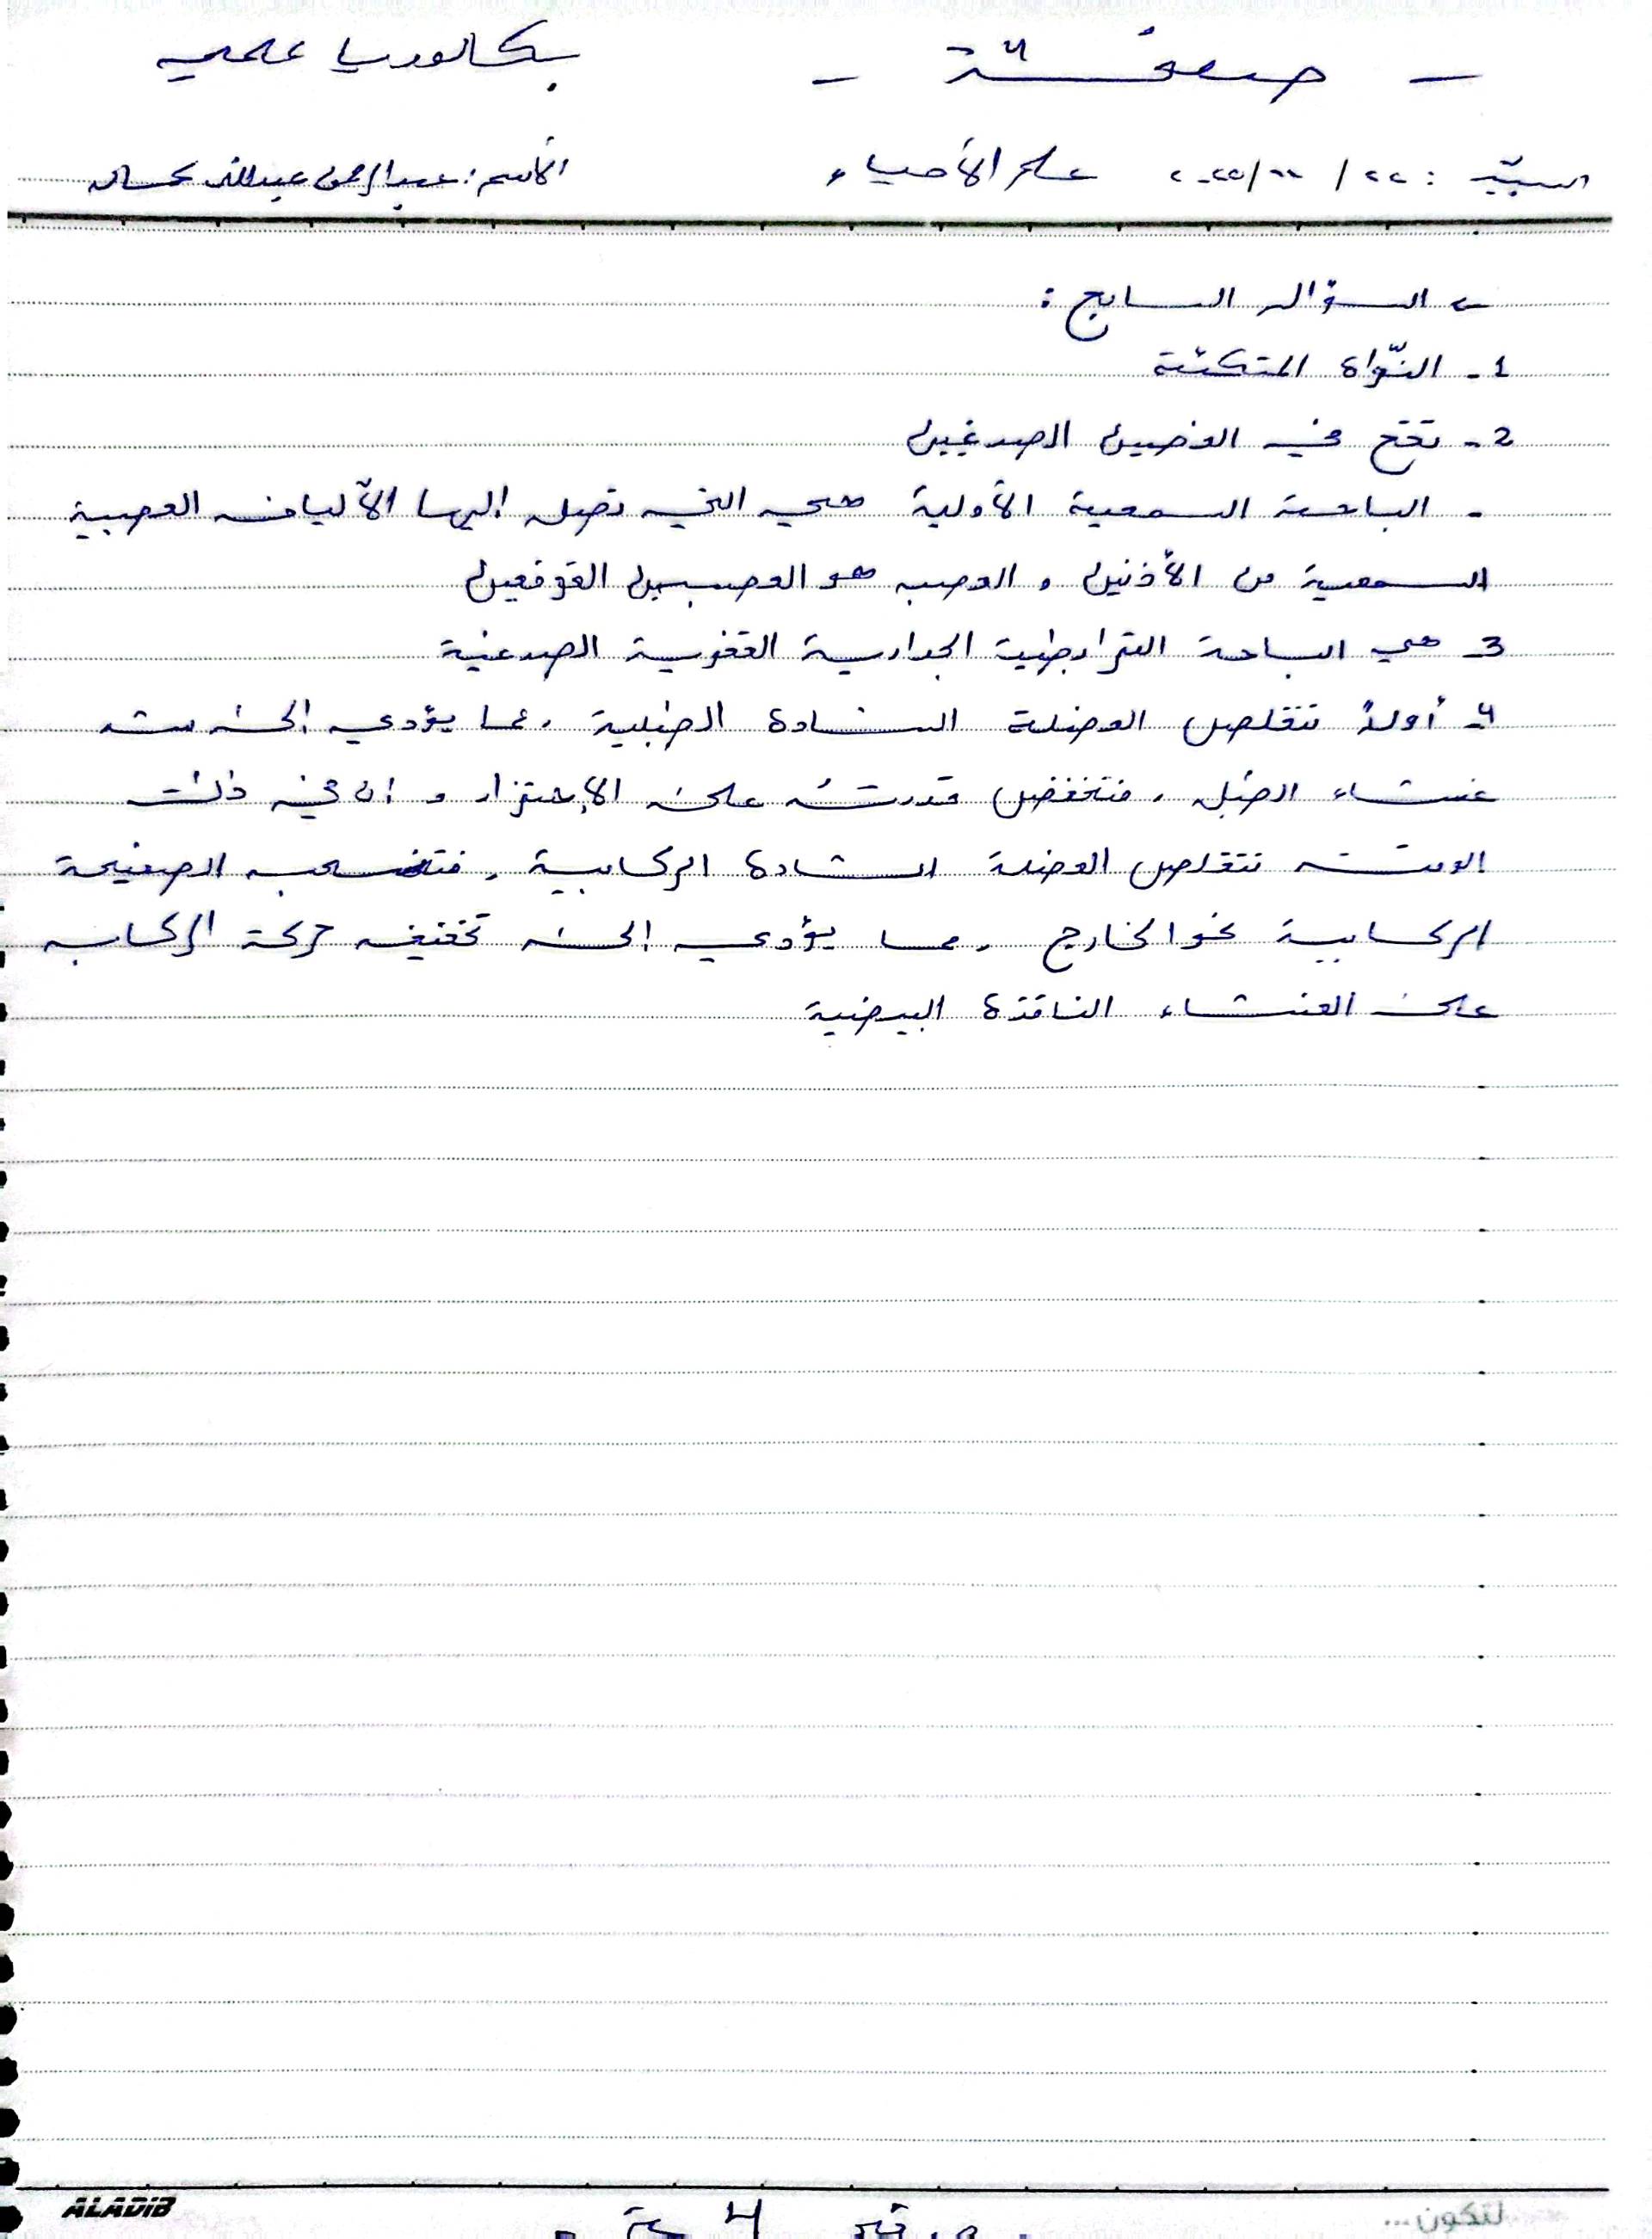 بكالوريا علمي
السبت : ٢٢ / ١١ / ٢٠٢٥ علم الأحياء الاسم : عبد الرحمن عبدالله
← السؤال السابع :
1- النّواة المتكئة
2- تقع في الفصين الصدغيين
- الباحة السمعية الأولية هي التي تصل إليها الألياف العصبية
السمعية من الأذنين و العصب هو العصبين القوقعيين
3- هي الباحة الترابطية الجدارية القفوية الصدغية
4- أولاً تتقلص العضلة الشادة الطبلية ، مما يؤدي إلى شد
غشاء الطبل ، فتنخفض قدرته على الإهتزاز و ان في ذلك
الوقت تتقلص العضلة الشادة الركابية ، فتسحب الصفيحة
الركابية نحو الخارج ، مما يؤدي إلى تخفيف حركة الركاب
على الغشاء النافذة البيضية
ALADIB
لتكون...